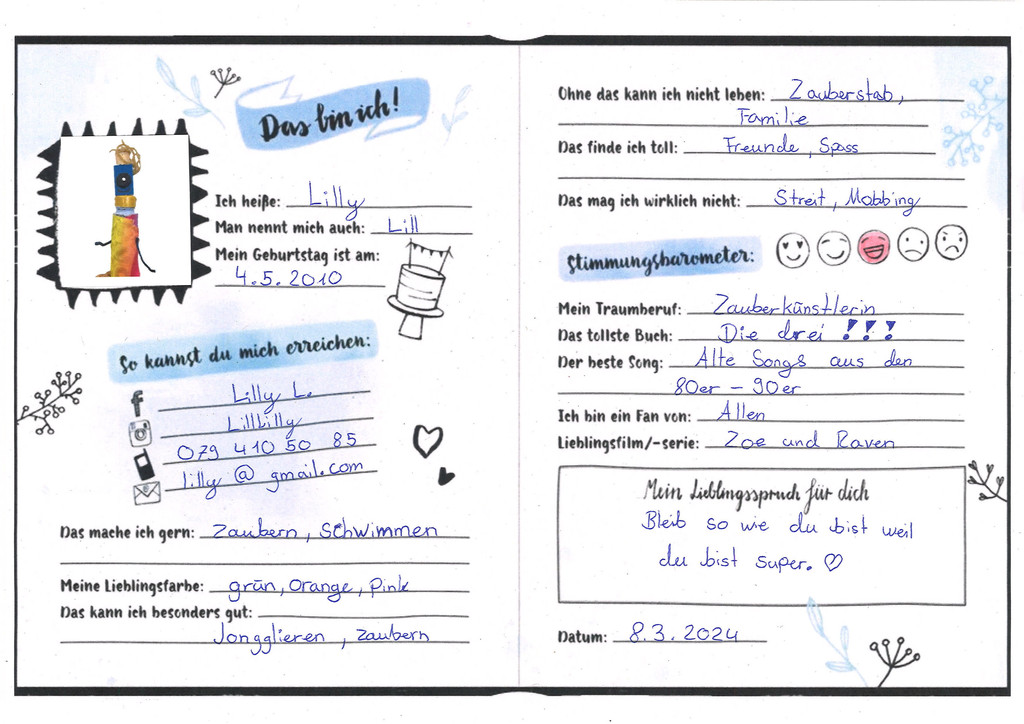 Das bin ich!
Ich heiße: Lilly
Man nennt mich auch: Lill
Mein Geburtstag ist am:
4.5.2010
So kannst du mich erreichen:
Lilly L.
LillLilly
079 410 50 85
lilly@gmail.com
Das mache ich gern: Zaubern, Schwimmen
Meine Lieblingsfarbe: grün, Orange, Pink
Das kann ich besonders gut:
Jongglieren, Zaubern
Ohne das kann ich nicht leben: Zauberstab,
Familie
Das finde ich toll: Freunde, Spass
Das mag ich wirklich nicht: Streit, Mobbing
Stimmungsbarometer:
Mein Traumberuf: Zauberkünstlerin
Das tollste Buch: Die drei !!!
Der beste Song: Alte Songs aus den
80er - 90er
Ich bin ein Fan von: Allen
Lieblingsfilm/-serie: Zoe und Raven
Mein Lieblingsspruch für dich
Bleib so wie du bist weil
du bist super. ♡
Datum: 8.3.2024